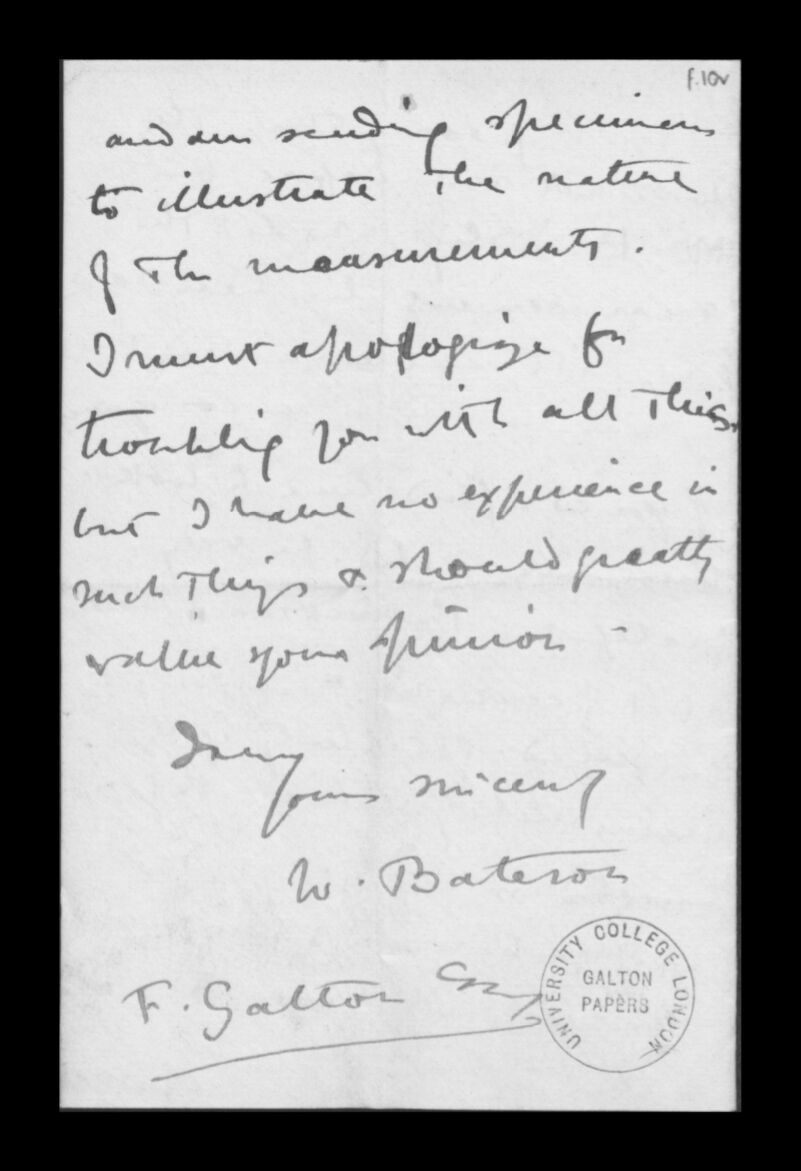 f.10v
and am sending specimens
to illustrate the nature
of the measurements.
I must apologize for
troubling you with all this,
but I have no experience in
such things & should greatly
value your opinion -
I am
yours sincerely
W. Bateson
F. Galton Esq
UNIVERSITY COLLEGE LONDON
GALTON
PAPERS